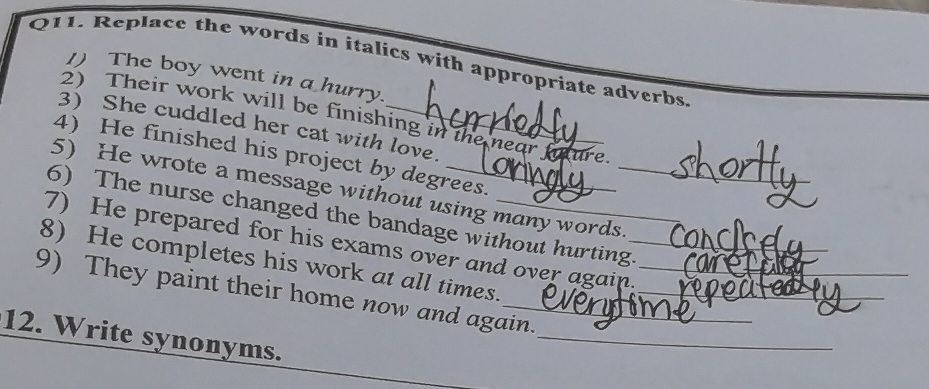 Q11. Replace the words in italics with appropriate adverbs.
1) The boy went in a hurry. hurriedly
2) Their work will be finishing in the near future. shortly
3) She cuddled her cat with love. lovingly
4) He finished his project by degrees.
5) He wrote a message without using many words. concisely
6) The nurse changed the bandage without hurting. carefully
7) He prepared for his exams over and over again. repeatedly
8) He completes his work at all times. everytime
9) They paint their home now and again.
12. Write synonyms.